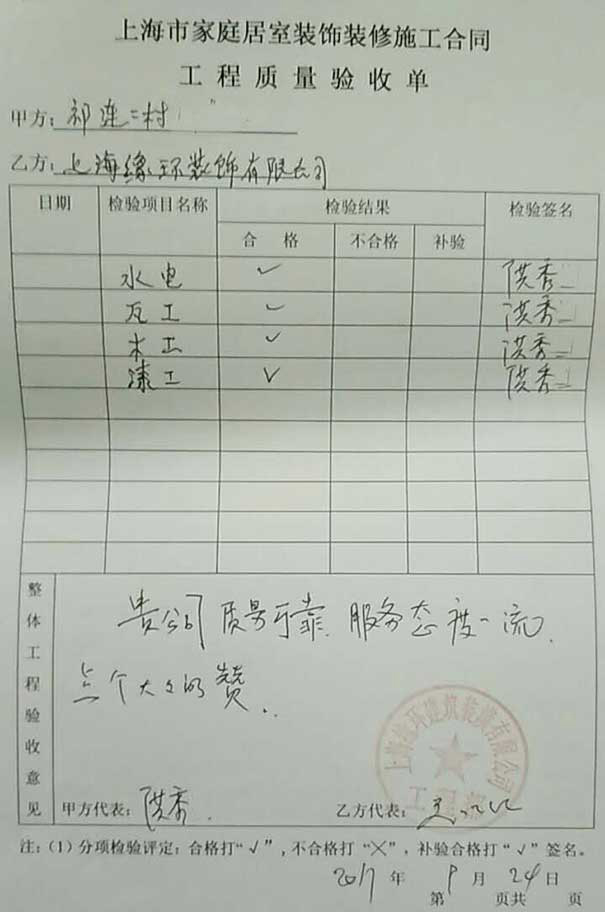 上海市家庭居室装饰装修施工合同
工程质量验收单
甲方：祁连二村
乙方：上海缘环装饰有限公司
日期 检验项目名称 检验结果 检验签名
合格 不合格 补验
水电 ✓ 洪秀
瓦工 ✓ 洪秀
木工 ✓ 洪秀
漆工 ✓ 洪秀
整体工程验收意见
贵公司质量可靠 服务态度一流.
点个大大的赞.
甲方代表：洪秀. 乙方代表：
注：(1)分项检验评定：合格打“√”，不合格打“╳”，补验合格打“√”签名。
2017年9月24日
第 页共 页